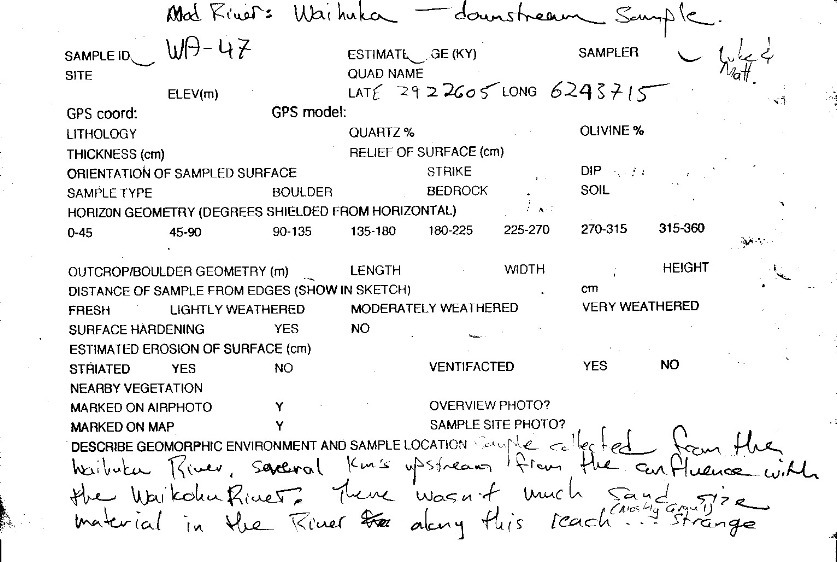 Mad River: Waihuka — downstream Sample.
SAMPLE ID WA-47 ESTIMATE GE (KY) SAMPLER Luke & Matt.
SITE QUAD NAME
ELEV(m) LATE 2922605 LONG 6243715
GPS coord: GPS model:
LITHOLOGY QUARTZ % OLIVINE %
THICKNESS (cm) RELIEF OF SURFACE (cm)
ORIENTATION OF SAMPLED SURFACE STRIKE DIP
SAMPLE TYPE BOULDER BEDROCK SOIL
HORIZON GEOMETRY (DEGREES SHIELDED FROM HORIZONTAL)
0-45 45-90 90-135 135-180 180-225 225-270 270-315 315-360
OUTCROP/BOULDER GEOMETRY (m) LENGTH WIDTH HEIGHT
DISTANCE OF SAMPLE FROM EDGES (SHOW IN SKETCH) cm
FRESH LIGHTLY WEATHERED MODERATELY WEATHERED VERY WEATHERED
SURFACE HARDENING YES NO
ESTIMATED EROSION OF SURFACE (cm)
STRIATED YES NO VENTIFACTED YES NO
NEARBY VEGETATION
MARKED ON AIRPHOTO Y OVERVIEW PHOTO?
MARKED ON MAP Y SAMPLE SITE PHOTO?
DESCRIBE GEOMORPHIC ENVIRONMENT AND SAMPLE LOCATION Sample collected from the
Waihuka River, several Km's upstream from the confluence with
the Waikohu River. There wasn't much sand size
(Mostly Gravel)
material in the River along this reach... strange